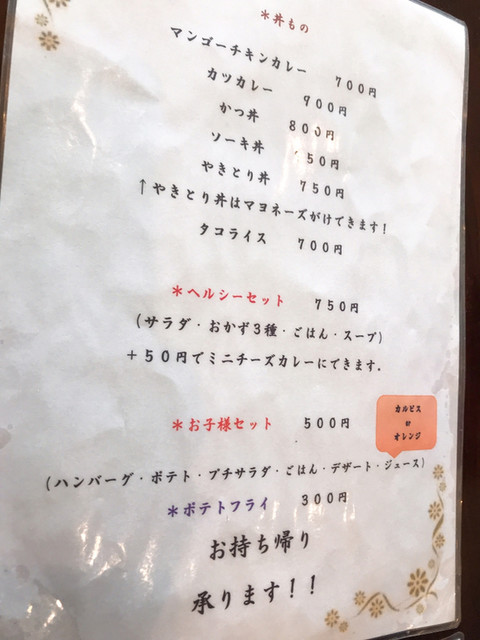 ＊丼もの
マンゴーチキンカレー 700円
カツカレー 900円
かつ丼 800円
ソーキ丼 50円
やきとり丼 750円
↑やきとり丼はマヨネーズがけできます!
タコライス 700円
＊ヘルシーセット 750円
(サラダ・おかず3種・ごはん・スープ)
＋50円でミニチーズカレーにできます.
＊お子様セット 500円
カルピス
or
オレンジ
(ハンバーグ・ポテト・プチサラダ・ごはん・デザート・ジュース)
＊ポテトフライ 300円
お持ち帰り
承ります!!